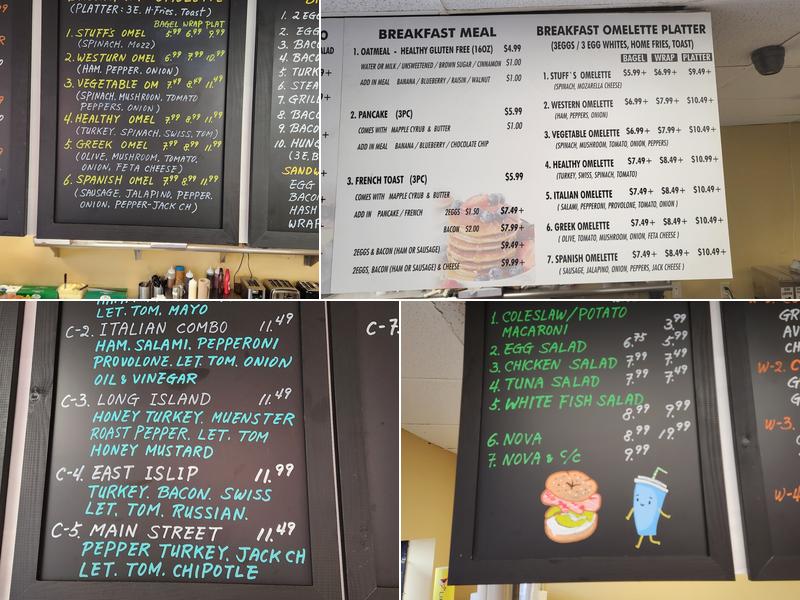 (PLATTER: 3E. H-Fries. Toast)
BAGEL WRAP PLAT
1. STUFFS OMEL 5.99 6.99 9.99
(SPINACH. MOZZ)
2. WESTURN OMEL 6.99 7.99 10.99
(HAM. PEPPER. ONION)
3. VEGETABLE OM 7.49 8.49 11.49
(SPINACH, MUSHROOM, TOMATO
PEPPERS. ONION)
4. HEALTHY OMEL 7.99 8.99 11.99
(TURKEY, SPINACH, SWISS, TOM)
5. GREEK OMEL 7.99 8.99 11.99
(OLIVE, MUSHROOM, TOMATO,
ONION, FETA CHEESE)
6. SPANISH OMEL 7.99 8.99 11.99
(SAUSAGE, JALAPINO, PEPPER.
ONION. PEPPER-JACK CH)
1. 2 EGG
2. EGG
3. BACO
4. BACO
5. TURK
6. STEA
7. GRILL
8. BACO
9. BACO
10. HUNG
(3E, B
SANDW
EGG
BACON
HASH
WRAP
BREAKFAST MEAL
1. OATMEAL - HEALTHY GLUTEN FREE (16OZ) $4.99
WATER OR MILK / UNSWEETENED / BROWN SUGAR / CINNAMON $1.00
ADD IN MEAL BANANA / BLUEBERRY / RAISIN / WALNUT $1.00
2. PANCAKE (3PC) $5.99
COMES WITH MAPPLE CYRUB & BUTTER $1.00
ADD IN MEAL BANANA / BLUEBERRY / CHOCOLATE CHIP
3. FRENCH TOAST (3PC) $5.99
COMES WITH MAPPLE CYRUB & BUTTER
ADD IN PANCAKE / FRENCH 2EGGS $1.50 $7.49+
BACON $2.00 $7.99+
2EGGS & BACON (HAM OR SAUSAGE) $9.49+
2EGGS, BACON (HAM OR SAUSAGE) & CHEESE $9.99+
BREAKFAST OMELETTE PLATTER
(3EGGS / 3 EGG WHITES, HOME FRIES, TOAST)
BAGEL WRAP PLATTER
1. STUFF`S OMELETTE $5.99+ $6.99+ $9.49+
(SPINACH, MOZARELLA CHEESE)
2. WESTERN OMELETTE $6.99+ $7.99+ $10.49+
(HAM, PEPPERS, ONION)
3. VEGETABLE OMELETTE $6.99+ $7.99+ $10.49+
(SPINACH, MUSHROOM, TOMATO, ONION, PEPPERS)
4. HEALTHY OMELETTE $7.49+ $8.49+ $10.99+
(TURKEY, SWISS, SPINACH, TOMATO)
5. ITALIAN OMELETTE $7.49+ $8.49+ $10.49+
( SALAMI, PEPPERONI, PROVOLONE, TOMATO, ONION )
6. GREEK OMELETTE $7.49+ $8.49+ $10.49+
( OLIVE, TOMATO, MUSHROOM, ONION, FETA CHEESE )
7. SPANISH OMELETTE $7.49+ $8.49+ $10.49+
( SAUSAGE, JALAPINO, ONION, PEPPERS, JACK CHEESE )
LET. TOM. MAYO
C-2. ITALIAN COMBO 11.49
HAM. SALAMI. PEPPERONI
PROVOLONE. LET. TOM. ONION
OIL & VINEGAR
C-3. LONG ISLAND 11.49
HONEY TURKEY. MUENSTER
ROAST PEPPER. LET. TOM
HONEY MUSTARD
C-4. EAST ISLIP 11.99
TURKEY. BACON. SWISS
LET. TOM. RUSSIAN.
C-5. MAIN STREET 11.49
PEPPER TURKEY. JACK CH
LET. TOM. CHIPOTLE
C-7.
1. COLESLAW/POTATO
MACARONI 3.99
2. EGG SALAD 6.75 5.99
3. CHICKEN SALAD 7.99 7.49
4. TUNA SALAD 7.99 7.49
5. WHITE FISH SALAD
8.99 9.99
6. NOVA 8.99 19.99
7. NOVA & C/C 9.99
W-2. C
W-3.
W-4